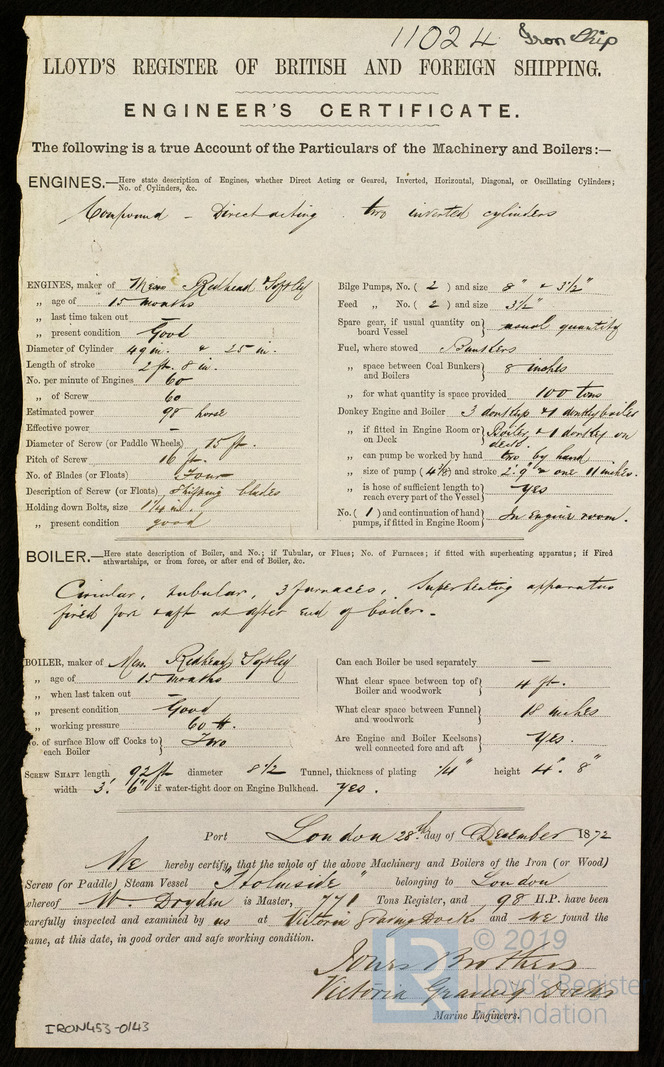 11024 Iron Ship
LLOYD'S REGISTER OF BRITISH AND FOREIGN SHIPPING.
ENGINEER'S CERTIFICATE.
The following is a true Account of the Particulars of the Machinery and Boilers:—
ENGINES.—Here state description of Engines, whether Direct Acting or Geared, Inverted, Horizontal, Diagonal, or Oscillating Cylinders;
No. of Cylinders, &c.
Compound – Direct acting two inverted cylinders
ENGINES, maker of Messrs Redhead & Softley
„ age of 15 months
„ last time taken out —
„ present condition Good
Diameter of Cylinder 49 in. & 25 in.
Length of stroke 2 ft. 8 in.
No. per minute of Engines 60
„ of Screw 60
Estimated power 98 horse
Effective power —
Diameter of Screw (or Paddle Wheels) 15 ft.
Pitch of Screw 16 ft.
No. of Blades (or Floats) Four
Description of Screw (or Floats) Shifting blades
Holding down Bolts, size 1¼ in.
„ present condition good
Bilge Pumps, No. ( 2 ) and size 8" & 3½"
Feed „ No. ( 2 ) and size 3½"
Spare gear, if usual quantity on
board Vessel } usual quantity
Fuel, where stowed Bunkers
„ space between Coal Bunkers
and Boilers } 8 inches
„ for what quantity is space provided 100 tons
Donkey Engine and Boiler 3 donkeys & 1 donkey boiler
„ if fitted in Engine Room or
on Deck } Boiler & 1 donkey on
deck.
„ can pump be worked by hand two by hand
„ size of pump and stroke 2'.9" & one 11 inches.
„ is hose of sufficient length to
reach every part of the Vessel } Yes
No. ( 1 ) and continuation of hand
pumps, if fitted in Engine Room } In Engine room.
BOILER.—Here state description of Boiler, and No.; if Tubular, or Flues; No. of Furnaces; if fitted with superheating apparatus; if Fired
athwartships, or from force, or after end of Boiler, &c.
Circular, tubular, 3 furnaces, Superheating apparatus
fired fore & aft at after end of boiler.
BOILER, maker of Mess. Redhead, Softley
„ age of 15 months
„ when last taken out —
„ present condition Good
„ working pressure 60 lb.
No. of surface Blow off Cocks to
each Boiler } Two
Can each Boiler be used separately —
What clear space between top of
Boiler and woodwork } 4 ft.
What clear space between Funnel
and woodwork } 18 inches
Are Engine and Boiler Keelsons
well connected fore and aft } Yes.
SCREW SHAFT length 92 ft diameter 8½ Tunnel, thickness of plating ¼" height 4'. 8"
width 3'. 6" if water-tight door on Engine Bulkhead. Yes.
Port London 28th day of December 1872
We hereby certify, that the whole of the above Machinery and Boilers of the Iron (or Wood)
Screw (or Paddle) Steam Vessel "Holmside" belonging to London
whereof W. Dryden is Master, 771 Tons Register, and 98 H.P. have been
carefully inspected and examined by us at Victoria Graving Docks and we found the
same, at this date, in good order and safe working condition.
Jones Brothers
Victoria Graving Docks
Marine Engineers.
IRON453-0143
LR
© 2019
Lloyd's Register
Foundation